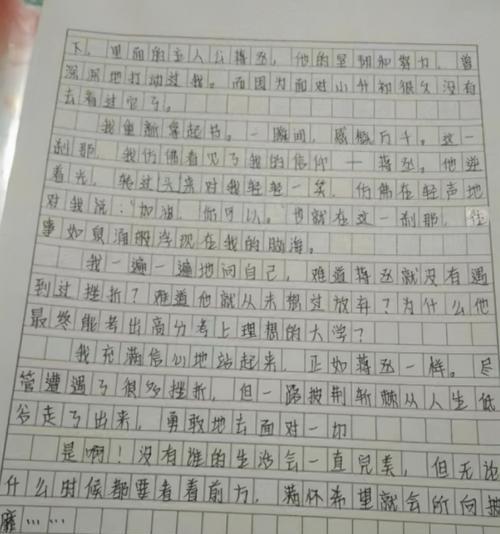 下，里面的主人公蒋丞，他的坚韧和努力，曾
深深地打动过我。而因为面对小升初很久没有
去看过它了。
我重新拿起书。一瞬间，感慨万千。这一
刹那，我仿佛看见了我的信仰——蒋丞。他逆
着光，转过头来对我轻轻一笑，仿佛在轻声地
对我说："加油，你可以。"也就在这一刹那，往
事如泉涌般浮现在我的脑海。
我一遍一遍地问自己，难道蒋丞就没有遇
到过挫折？难道他就从未想过放弃？为什么他
最终能考出高分考上理想的大学？
我充满信心地站起来，正如蒋丞一样。尽
管遭遇了很多挫折，但一路披荆斩棘从人生低
谷走了出来，勇敢地去面对一切
是啊！没有谁的生活会一直完美，但无论
什么时候都要看着前方，满怀希望就会所向披
靡……